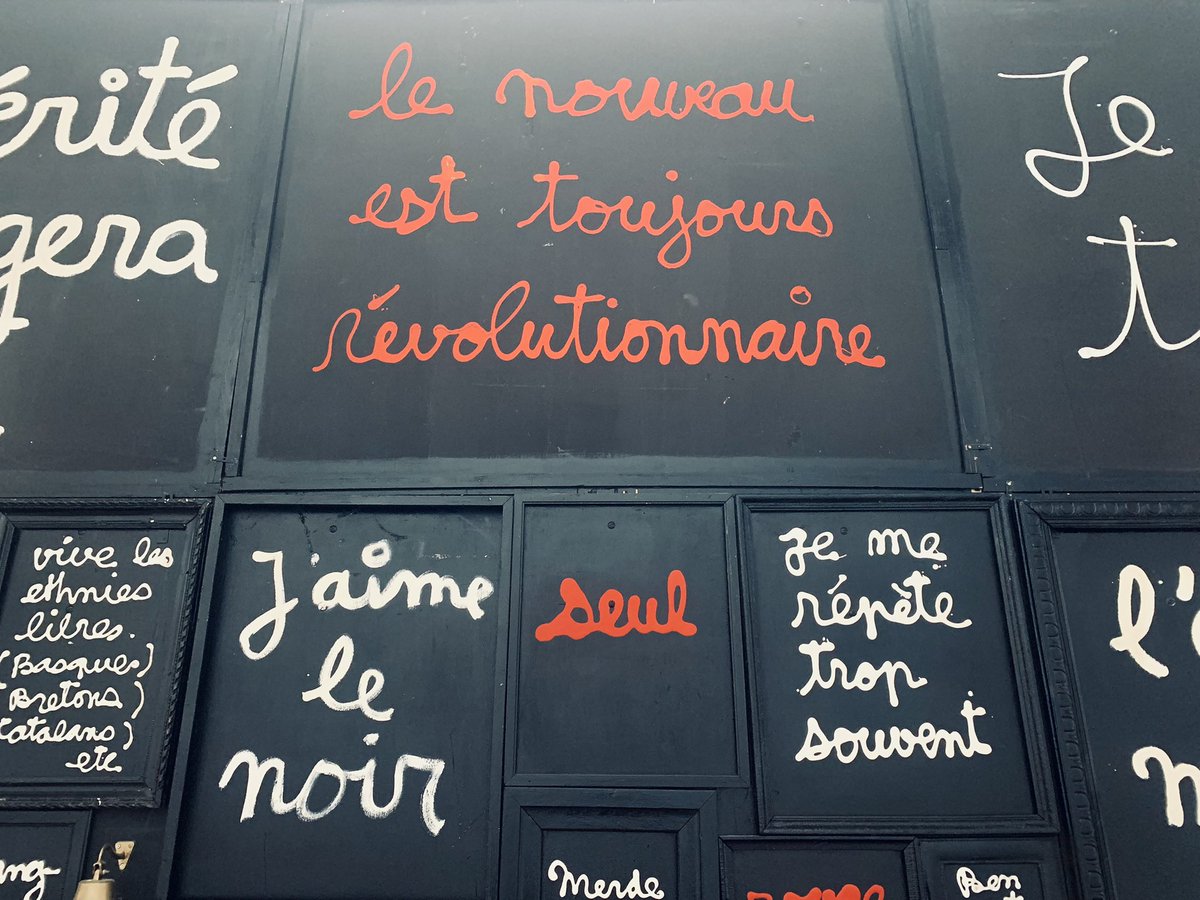 le nouveau
est toujours
révolutionnaire
Je
t
érité
gera
vive les
ethnies
libres.
(Basques)
(Bretons)
Catalans)
etc
J'aime
le
noir
seul
Je me
répète
trop
souvent
l'
m
ang-
Merde
Ben